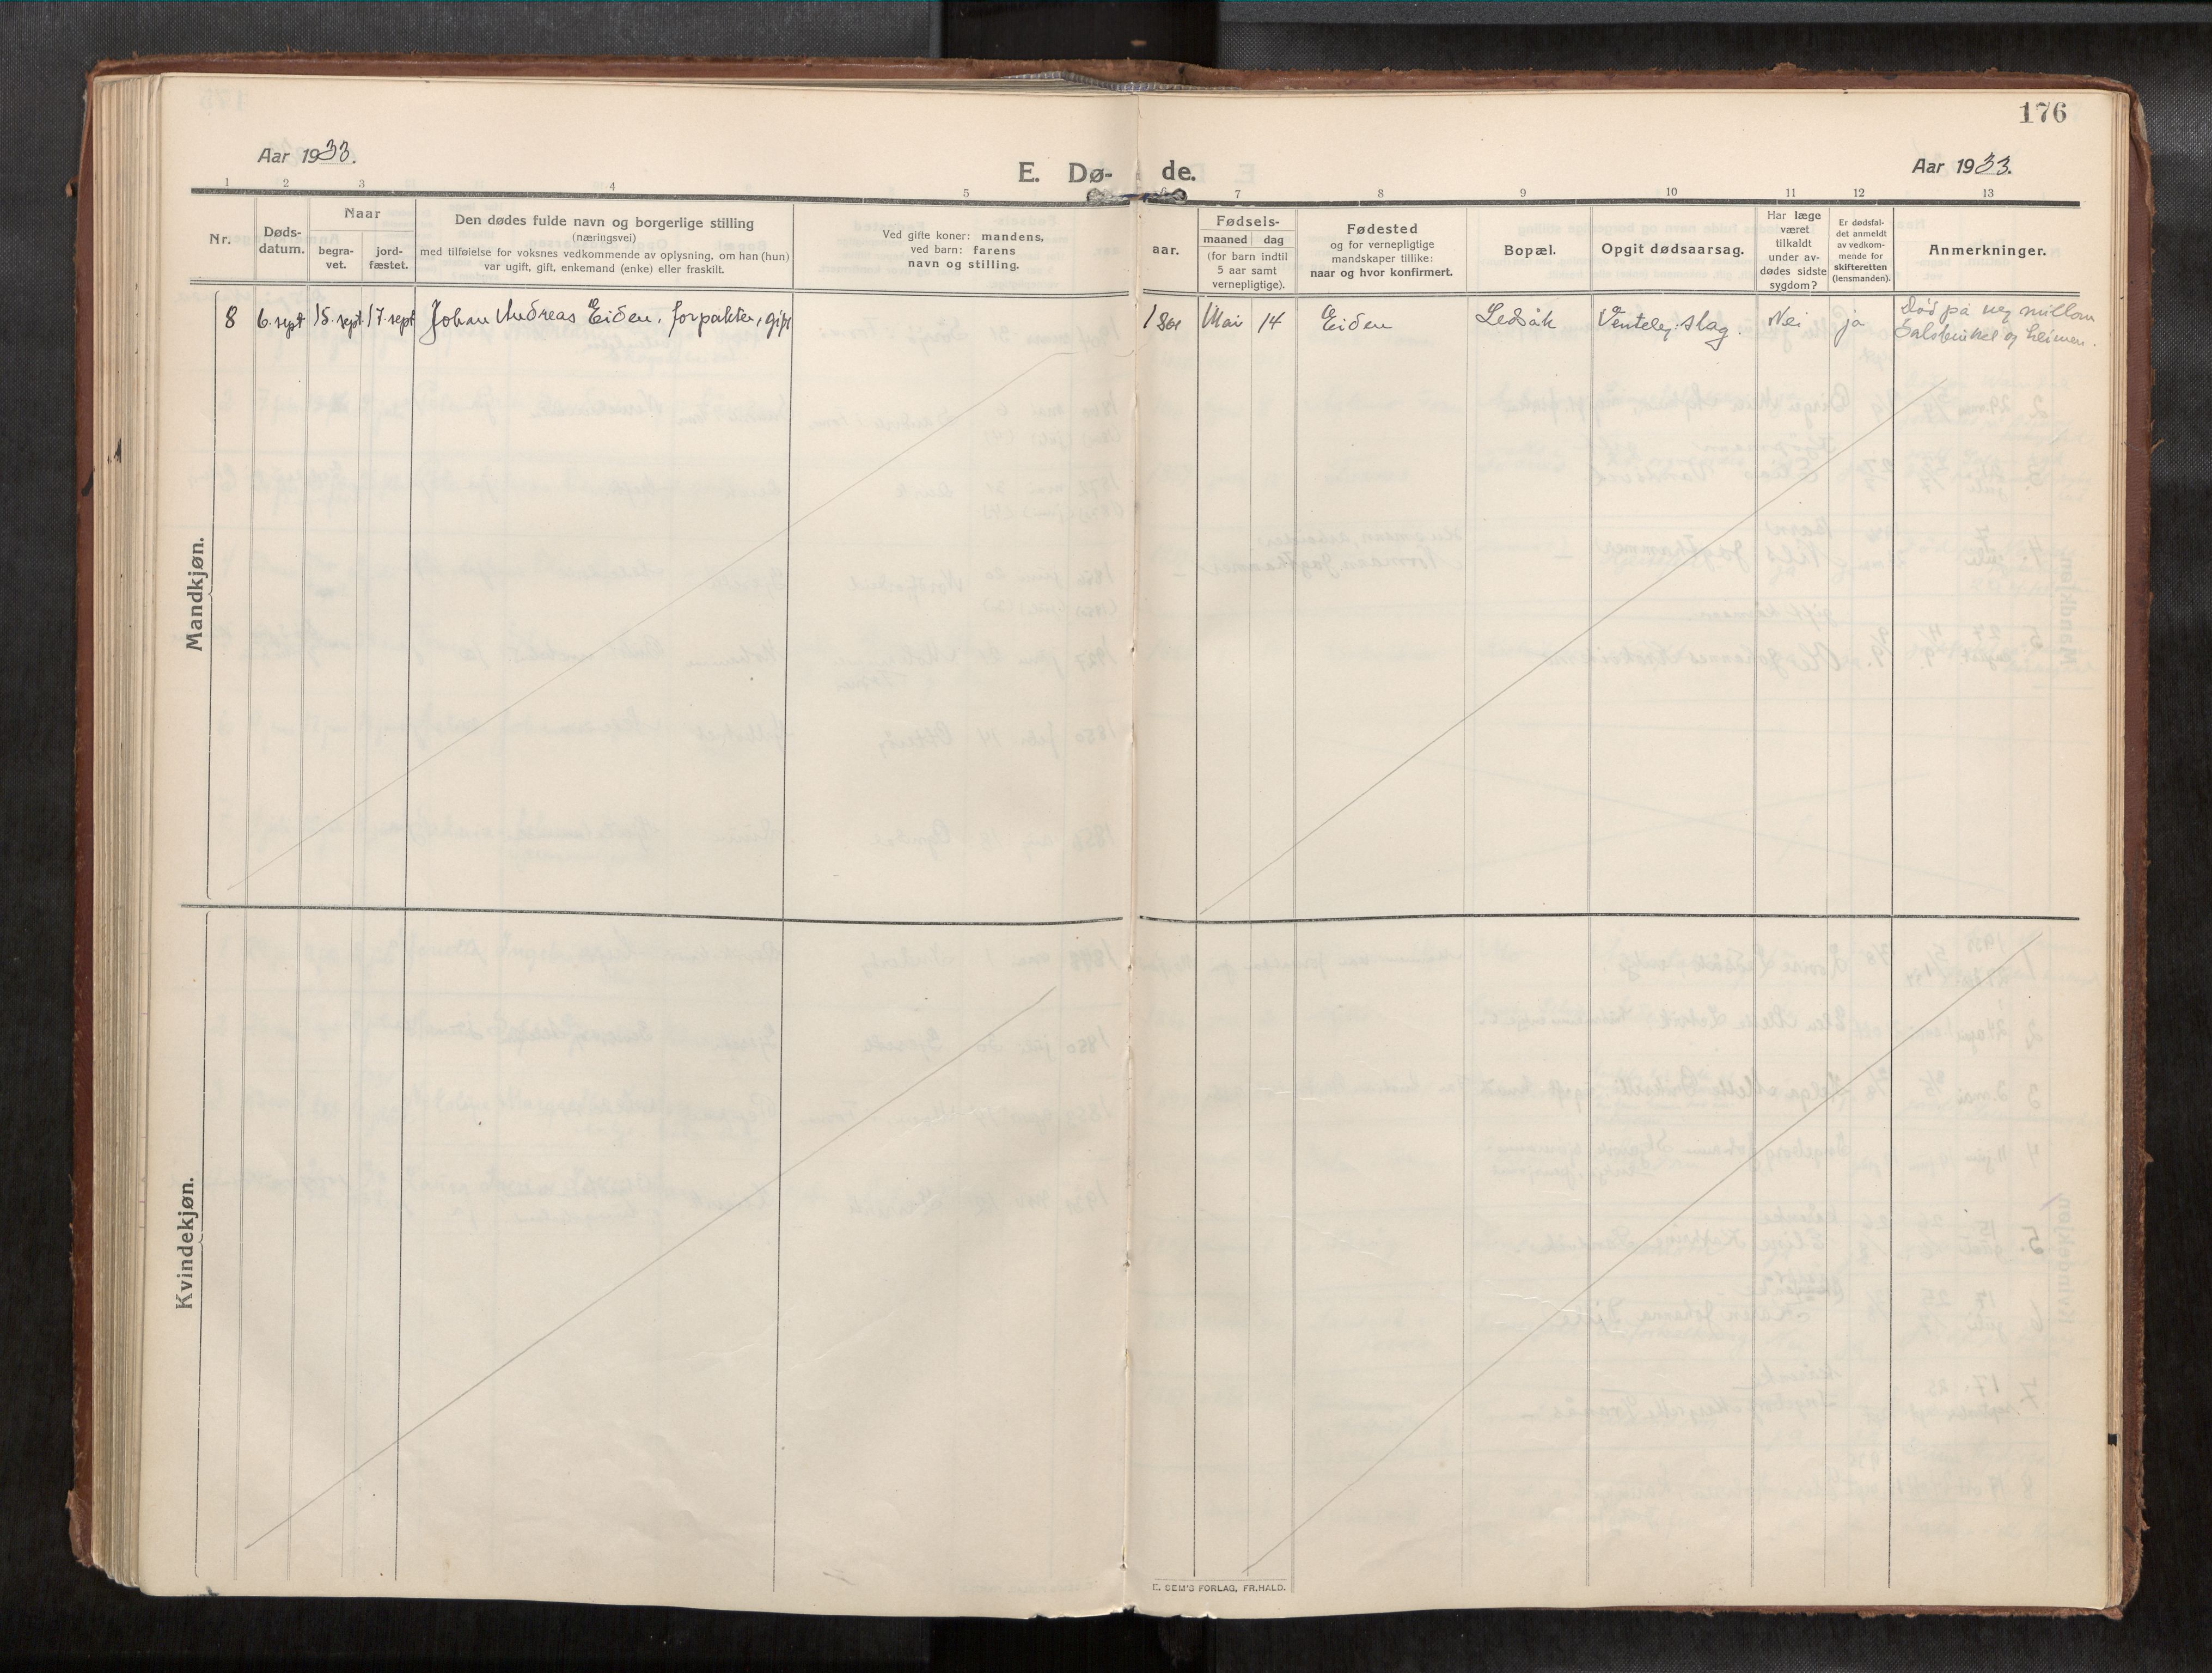 176
Aar 1933.
E. Dø- de.
Aar 1933.
1 2 3 4 5 6 7 8 9 10 11 12 13
Nr.
Døds-
datum.
Naar
begra-
vet.
jord-
fæstet.
Den dødes fulde navn og borgerlige stilling
(næringsvei)
med tilføielse for voksnes vedkommende av oplysning, om han (hun)
var ugift, gift, enkemand (enke) eller fraskilt.
Ved gifte koner: mandens,
ved barn: farens
navn og stilling.
aar.
Fødsels-
maaned dag
(for barn indtil
5 aar samt
vernepligtige).
Fødested
og for vernepligtige
mandskaper tillike:
naar og hvor konfirmert.
Bopæl.
Opgit dødsaarsag.
Har læge
været
tilkaldt
under av-
dødes sidste
sygdom?
Er dødsfal-
det anmeldt
av vedkom-
mende for
skifteretten
(lensmanden).
Anmerkninger.
8 6. sept 15. sept 17. sept Johan Andreas Eiden, forpakter, gift
Mai 14 Eiden Ledsåk slag. Nei ja
Død på veg millom
og heimen.
Mandkjøn.
Kvindekjøn.
E. SEM'S FORLAG, FR.HALD.